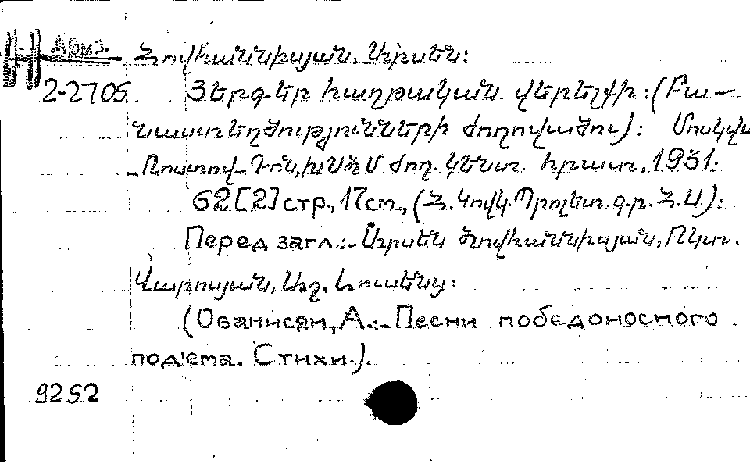 Հովհաննիսյան. Արսեն:
2-2705 Յերգեր հաղթական վերելքի: (Բա-
նաստեղծությունների ժողովածու): Մոսկվա
Ռոստով-Դոն, ԽՍՖՄ ժող. կենտ. հրատ., 1931:
62[2] стр, 17см, (Հ. Կովկ. Պրոլետ. գ.ր. Հ. Ա):
Перед загл.:- Արսեն Հովհաննիսյան, Ոկտ.
Վարոսյան, Աղ.
(Ованисян, А.:- Песни победоносного
под'ема. Стихи).
9252